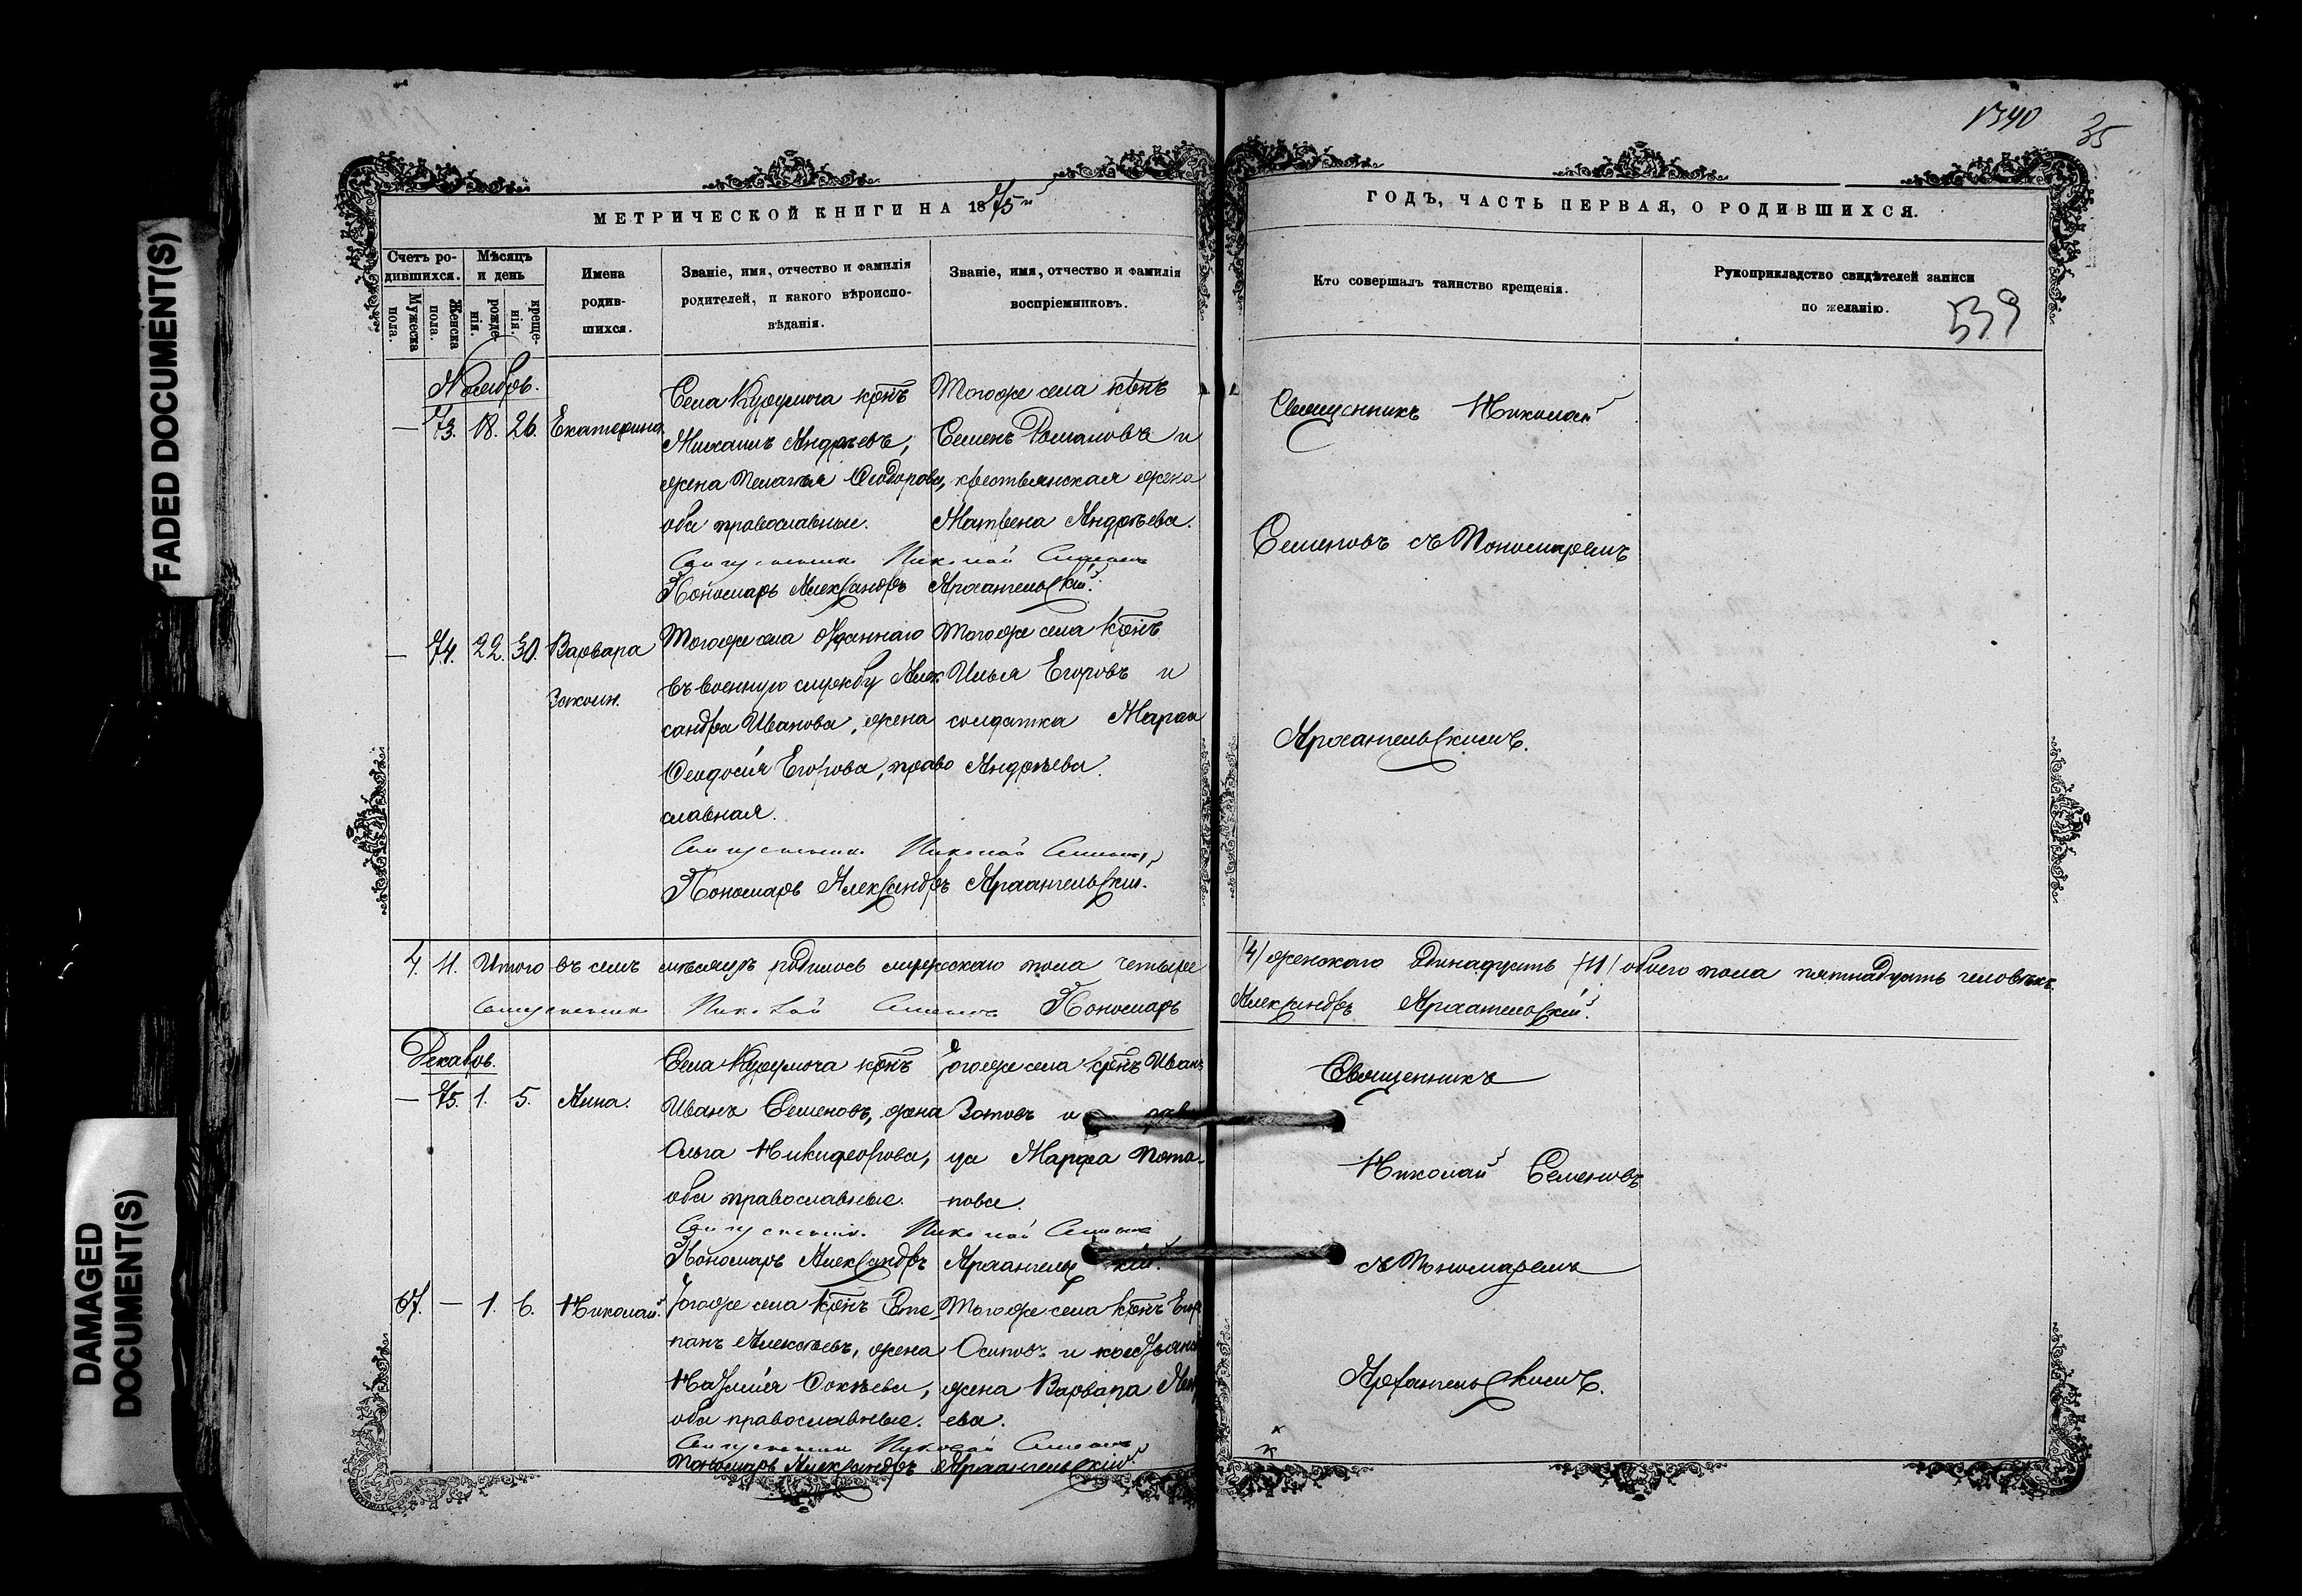 FADED DOCUMENT(S)
DAMAGED
DOCUMENT(S)
1340
35
МЕТРИЧЕСКОЙ КНИГИ НА 1875й
ГОДЪ, ЧАСТЬ ПЕРВАЯ, О РОДИВШИХСЯ.
Счетъ ро-
дившихся.
Мужеска
пола.
Женска
пола.
Мѣсяцъ
и день
рожде-
нія.
креще-
нія.
Имена
родив-
шихся.
Званіе, имя, отчество и фамилія
родителей, и какого вѣроиспо-
вѣданія.
Званіе, имя, отчество и фамилія
воспріемниковъ.
Кто совершалъ таинство крещенія.
Рукоприкладство свидѣтелей записи
по желанію.
539
Ноябрь.
— 73. 18. 26. Екатерина
Села Курумоча крнъ
Михаилъ Андреевъ,
жена Пелагья Феодорова,
оба православные.
Тогоже села крнъ
Семенъ Романовъ и
крестьянская жена
Матвена Андрѣева.
Священникъ Николай Семеновъ
Пономарь Александръ Архангельскій.
Священникъ Николай
Семеновъ съ Пономаремъ
Архангельскимъ.
— 74. 22. 30. Варвара
Закон.
Тогоже села отданнаго
въ военную службу Алек
сандра Иванова, жена
Феодосія Егорова, право
славная.
Тогоже села крнъ
Илья Егоровъ и
солдатка Марѳа
Андрѣева.
Священникъ Николай Семеновъ
Пономарь Александръ Архангельскій.
4. 11. Итого въ семъ мѣсяцѣ родилось мужескаго пола четыре (4) женскаго одинадцать (11) обоего пола пятнадцать человѣкъ.
Священникъ Николай Семеновъ Пономарь Александръ Архангельскій.
Декабрь.
— 75. 1. 5. Анна.
Села Курумоча крнъ
Иванъ Семеновъ, жена
Ольга Никифорова,
оба православные.
Тогоже села крнъ Иванъ
Зотовъ и
ца Марфа Пота-
пова.
Священникъ Николай Семеновъ
Пономарь Александръ Архангельскій.
Священникъ
Николай Семеновъ
съ Пономаремъ
Архангельскимъ.
67. — 1. 6. Николай.
Тогоже села крнъ Сте
панъ Алексѣевъ, жена
Наталія Фокѣева,
оба православные.
Тогоже села крнъ Егоръ
Осиповъ и крестьянск
жена Варвара
ева.
Священникъ Николай Семеновъ
Пономарь Александръ Архангельскій.